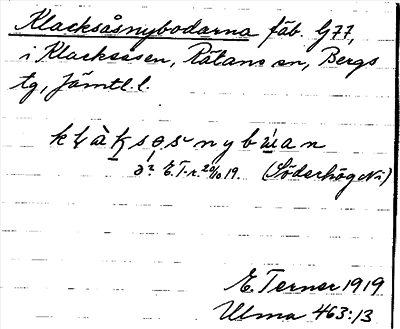 Klacksåsnybodarna fäb. G77,
i Klacksåsen, Rätans sn, Bergs
tg, Jämtl. l.
E. T-r. 20/10 19. (Söderhög N:1)
E. Terner 1919
Ulma 463:13